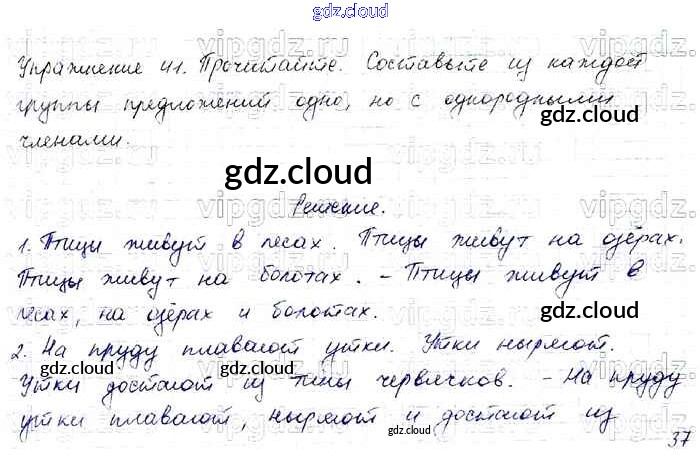 gdz.cloud
Упражнение 41. Прочитайте. Составьте из каждой
группы предложений одно, но с однородными
членами.
gdz.cloud
gdz.cloud
Решение.
1. Птицы живут в лесах. Птицы живут на озёрах.
Птицы живут на болотах. – Птицы живут в
лесах, на озёрах и болотах.
gdz.cloud
2. На пруду плавают утки. Утки ныряют.
Утки достают из тины червячков. – На пруду
gdz.cloud
утки плавают, ныряют и достают из
gdz.cloud
37